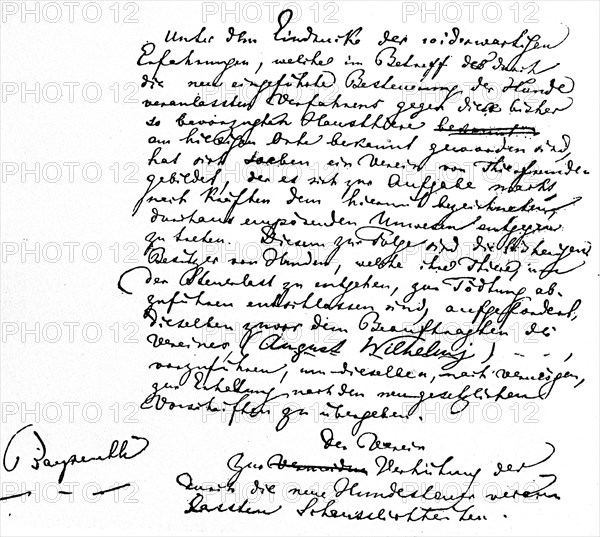 Unter dem Eindrucke der widerwärtigen
Erfahrungen, welche im Betreff des durch
die neu eingeführte Besteuerung der Hunde
veranlassten Verfahrens gegen diese bisher
so bevorzugten Hausthiere
am hiesigen Orte bekannt geworden sind,
hat sich soeben ein Verein von Thierfreunden
gebildet, der es sich zur Aufgabe macht,
nach Kräften dem hiermit bezeichneten,
durchaus empörenden Unwesen entgegen
zu treten. Diesem zur Folge sind die bisherigen
Besitzer von Hunden, welche ihre Thiere, um
der Steuerlast zu entgehen, zur Tödtung ab-
zuführen entschlossen sind, aufgefordert,
dieselben zuvor dem Beauftragten des
Vereines (August Wilhelmj) - - - ,
vorzuführen, um dieselben, nach Vermögen,
zur Erhaltung nach den neugesetzlichen
Vorschriften zu übergeben.
Der Verein
zur Verhütung der
durch die neue Hundesteuer veran
lassten Scheusslichkeiten.